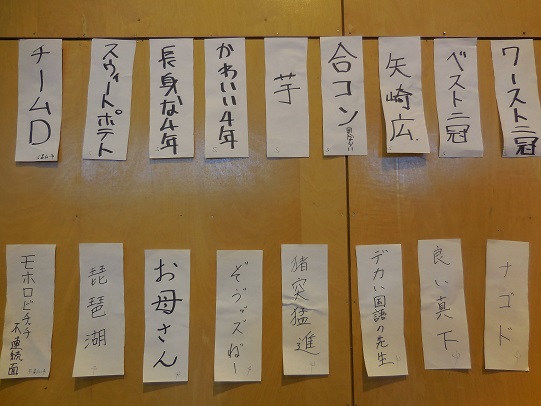 ワースト二冠
ベスト二冠
矢崎広
合コン
芋
かわいい4年
長身な4年
スウィートポテト
チームD
ナゴド
良い真下
デカい国語の先生
猪突猛進
お母さん
琵琶湖
モホロビチッチ
不連続面